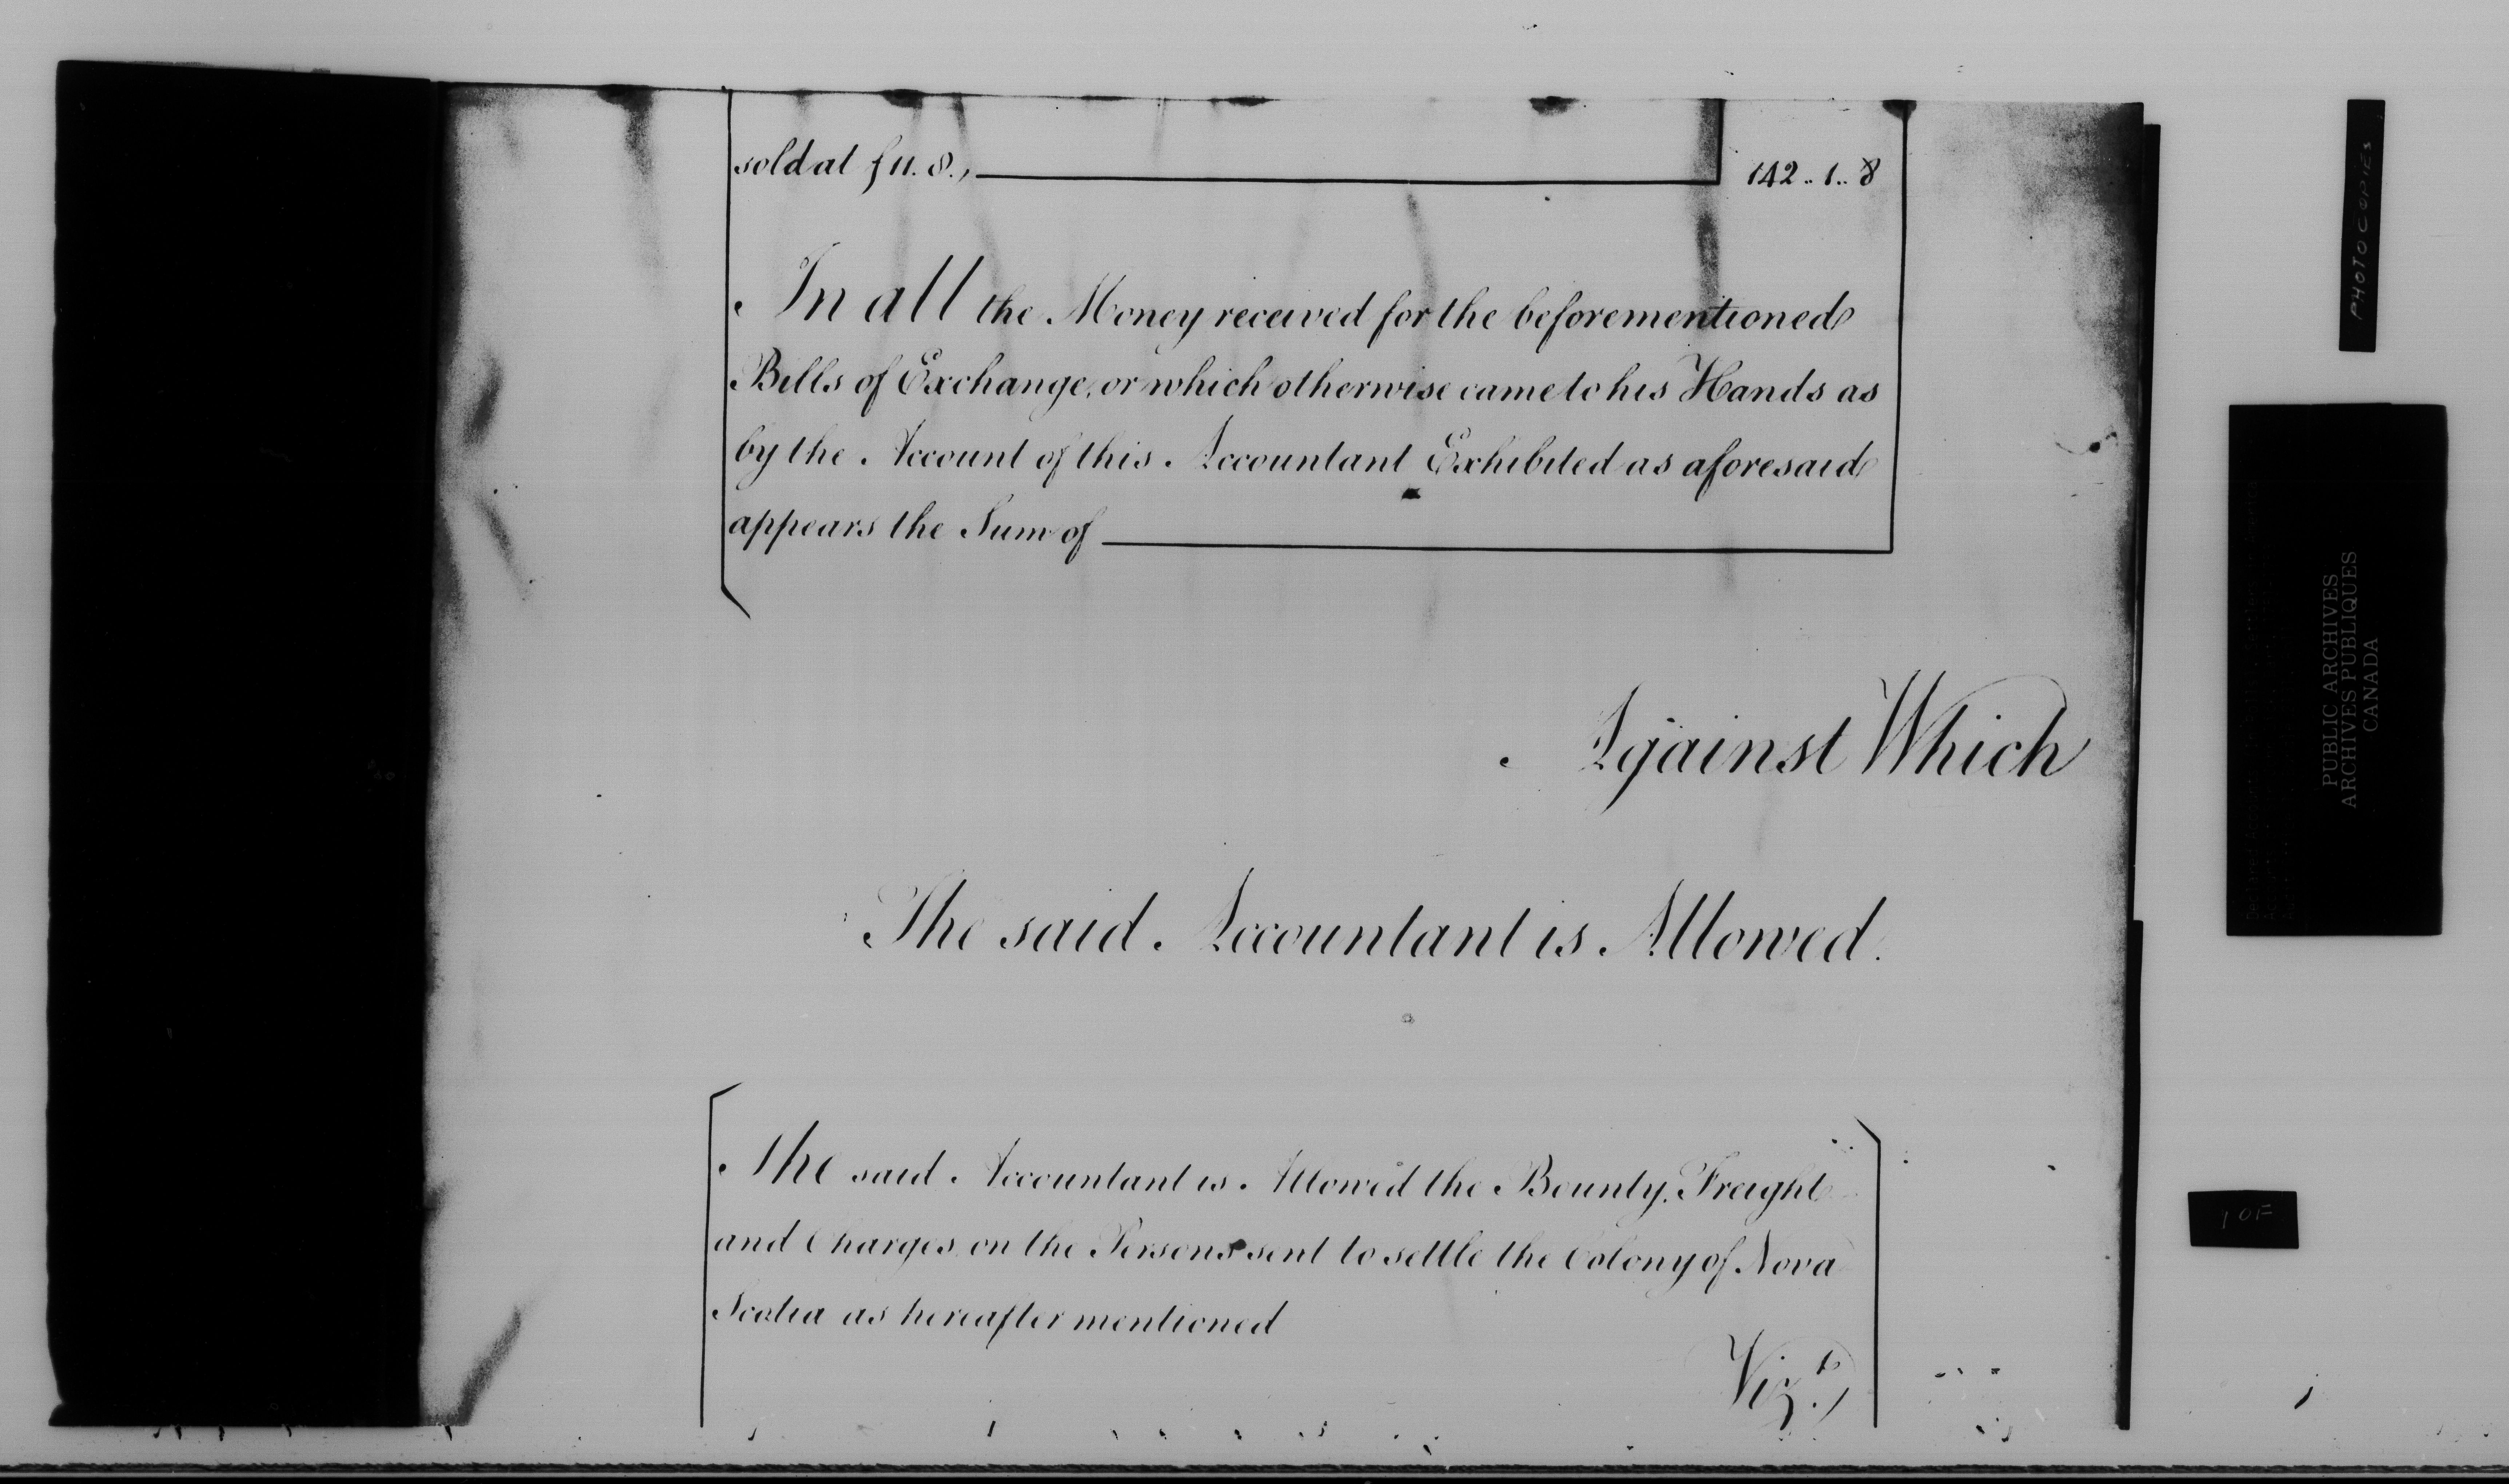 sold at f 11. 8., 142 .. 1 .. 8
In all the Money received for the beforementioned
Bills of Exchange, or which otherwise came to his Hands as
by the Account of this Accountant Exhibited as aforesaid
appears the Sum of
Against Which
The said Accountant is Allowed.
The said Accountant is Allowed the Bounty, Freight
and Charges on the Persons sent to settle the Colony of Nova
Scotia as hereafter mentioned
Vizt.
PHOTOCOPIES
PUBLIC ARCHIVES
ARCHIVES PUBLIQUES
CANADA